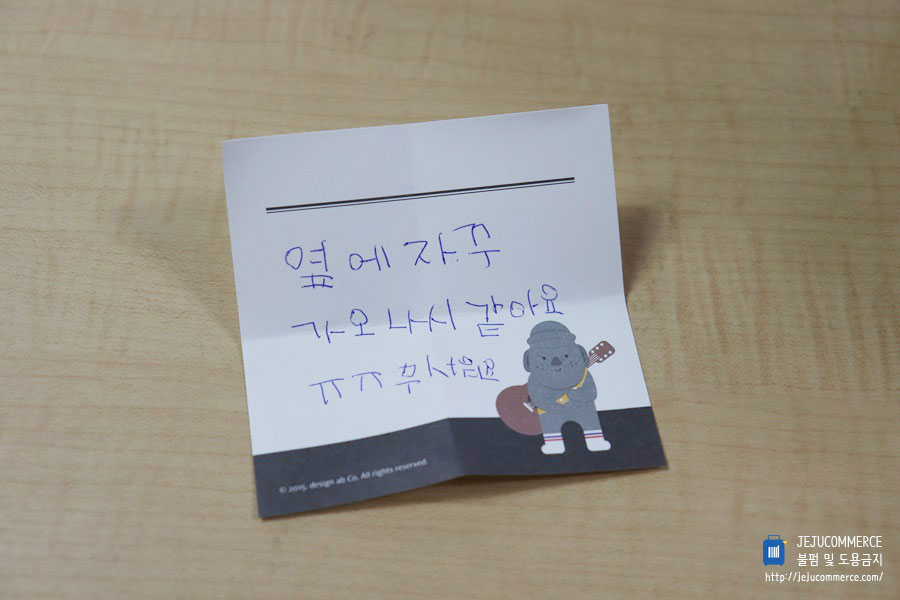 옆에 자꾸
가오나시 같아요
ㅠㅠ 무서워요
© 2015. design ab Co. All rights reserved.
JEJUCOMMERCE
불펌 및 도용금지
http://jejucommerce.com/